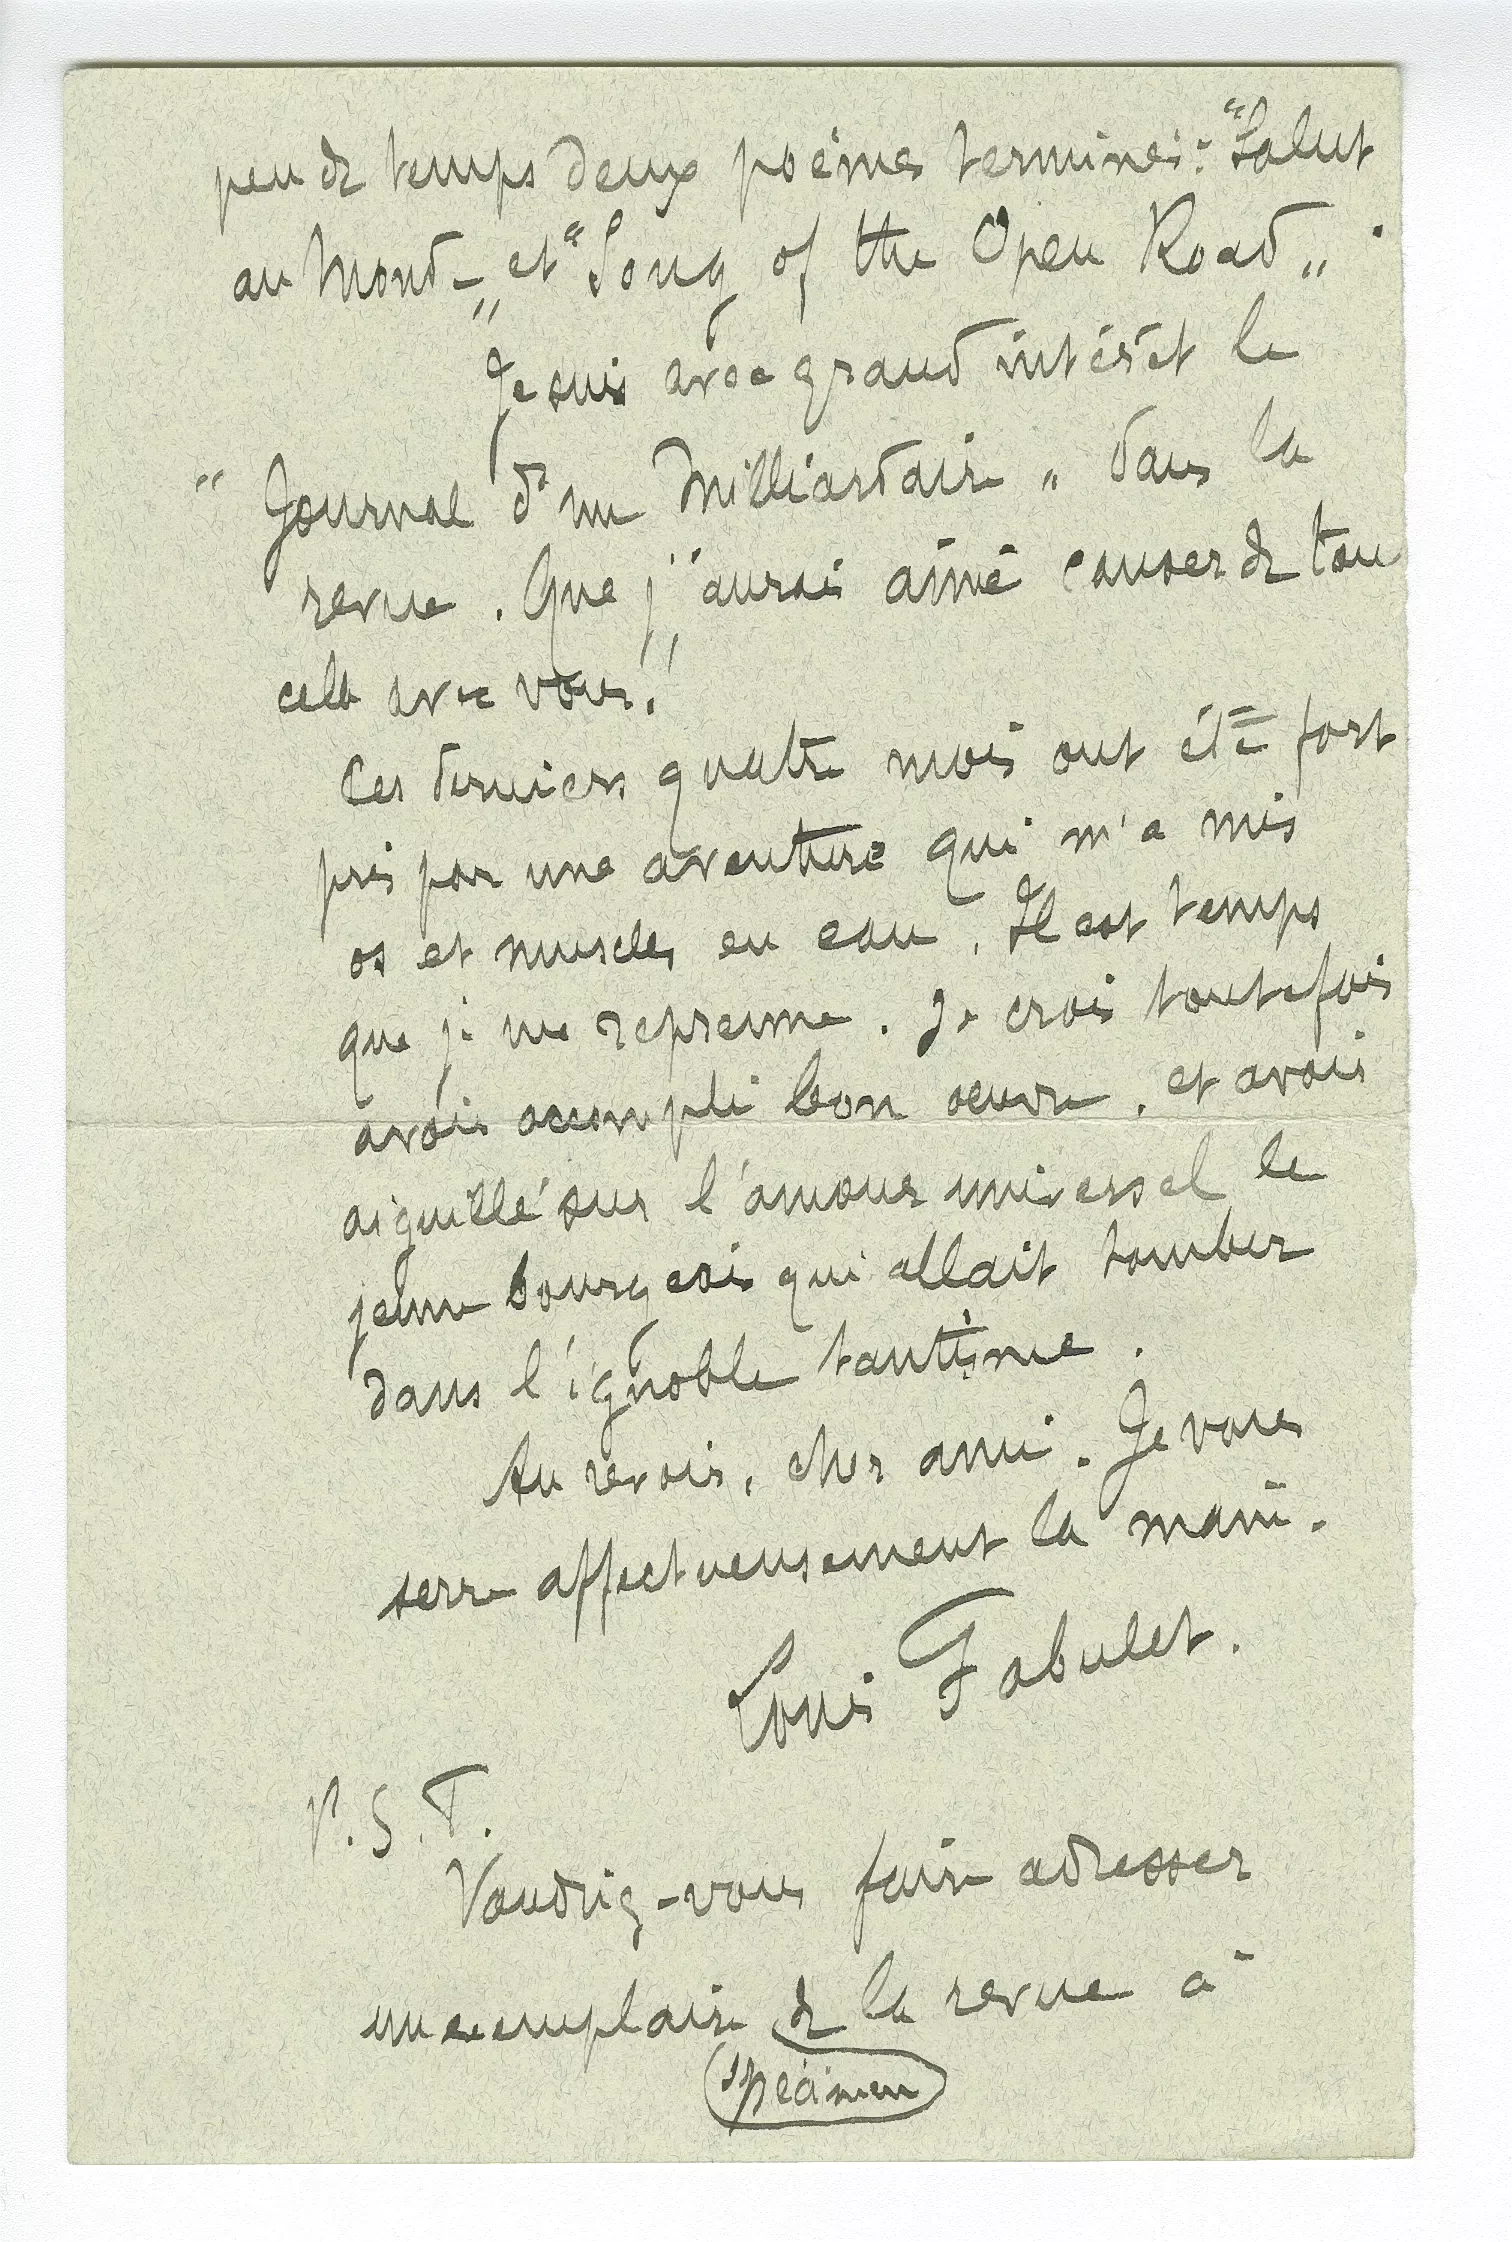 peu de temps deux poèmes terminés : "Salut
au Monde" et "Song of the Open Road".
Je suis avec grand intérêt le
"Journal d'un Milliardaire" dans la
revue. Que j'aurais aimé causer de tout
cela avec vous !
Ces derniers quatre mois ont été fort
pris par une aventure qui m'a mis
os et muscles en eau. Il est temps
que je me reprenne. Je crois toutefois
avoir accompli bon oeuvre, et avoir
aiguillé sur l'amour universel le
jeune bourgeois qui allait tomber
dans l'ignoble
Au revoir, cher ami. Je vous
serre affectueusement la main.
Louis Fabulet.
P.S.T.
Voudriez-vous faire adresser
un exemplaire de la revue à
spécimen